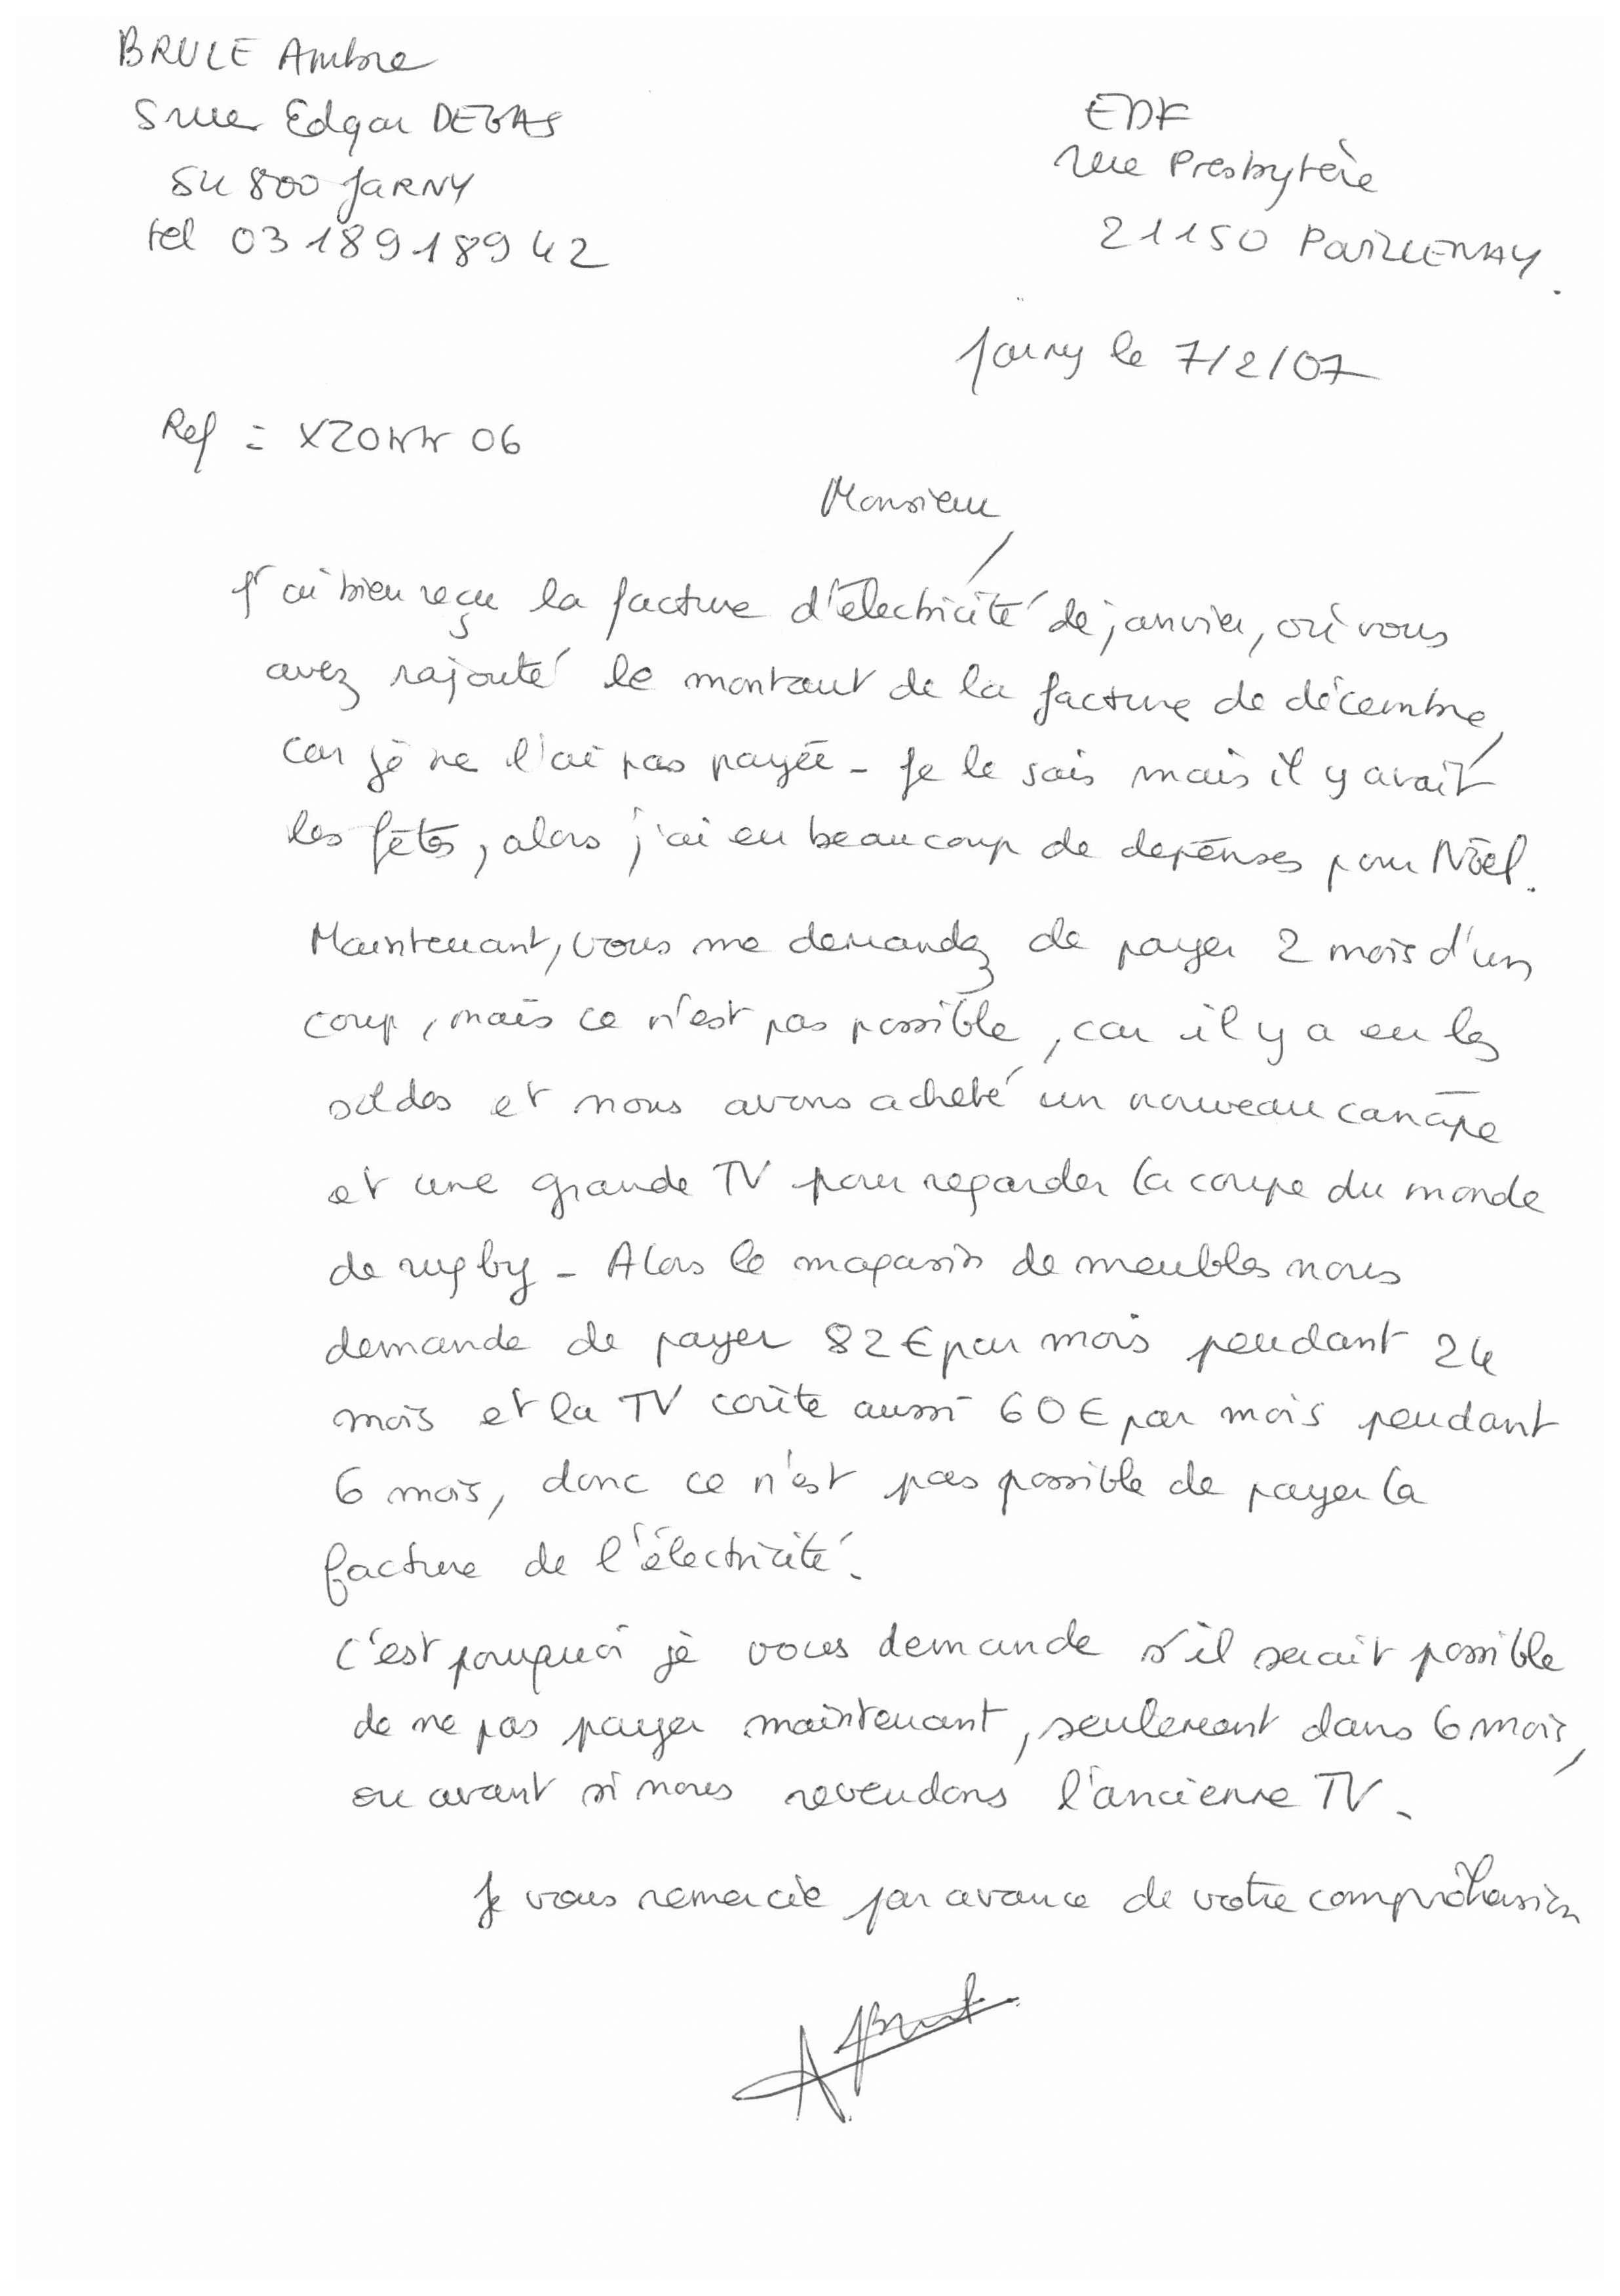 BRULE Ambre
5 rue Edgar DEGAS
54 800 JARNY
tel 03 18 91 89 42
EDF
rue Presbytère
21150 POUILLENAY.
Jarny le 7/2/07
Ref = XZOWW 06
Monsieur,
J'ai bien reçu la facture d'électricité de janvier, où vous
avez rajouté le montant de la facture de décembre,
car je ne l'ai pas payée - Je le sais mais il y avait
les fêtes, alors j'ai eu beaucoup de depenses pour Nöel.
Maintenant, vous me demandez de payer 2 mois d'un
coup, mais ce n'est pas possible, car il y a eu les
soldes et nous avons acheté un nouveau canape
et une grande TV pour regarder la coupe du monde
de rugby - Alors le magasin de meubles nous
demande de payer 82 € par mois pendant 24
mois et la TV coûte aussi 60 € par mois pendant
6 mois, donc ce n'est pas possible de payer la
facture de l'électricité.
C'est pourquoi je vous demande s'il serait possible
de ne pas payer maintenant, seulement dans 6 mois,
ou avant si nous revendons l'ancienne TV.
Je vous remercie par avance de votre compréhension